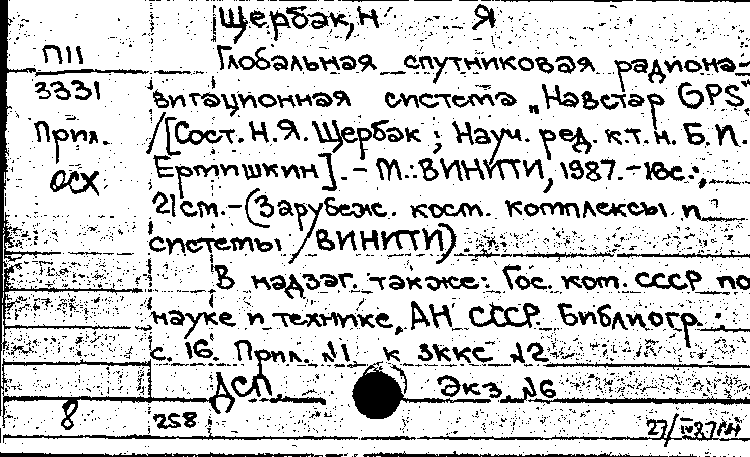 Щербак, Н Я
П11 Глобальная спутниковая радиона-
3331 вигационная система „Навстар GPS"
Прил. /[Сост. Н.Я. Щербак ; Науч. ред. к.т.н. Б.И.
осх Ермишкин]. - М.: ВИНИТИ, 1987. - 18с.;
21см. - (Зарубеж. косм. комплексы и
системы / ВИНИТИ).
В надзаг. также: Гос. ком. СССР по
науке и технике, АН СССР. Библиогр.:
с. 16. Прил. №1 к ЗККС №2
ДСП. Экз. №6
8 258 27/IV